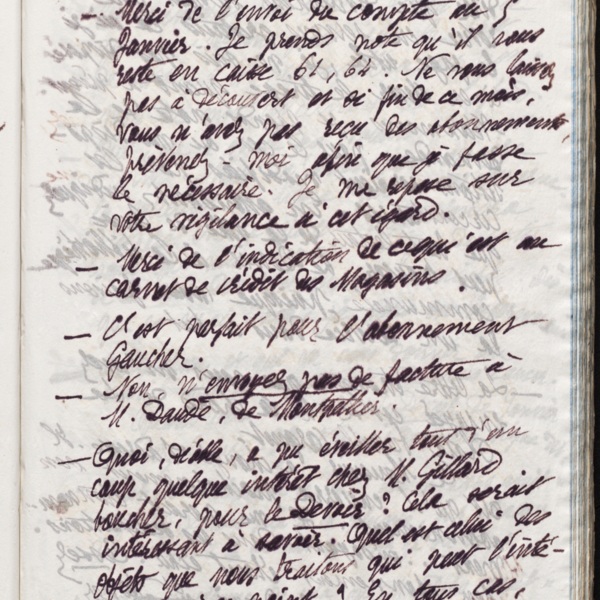 — Merci de l'envoi du compte au 5
Janvier. Je prends note qu'il vous
reste en caisse 61,64. Ne vous laissez
pas à découvert et si fin de ce mois,
vous n'avez pas reçu des abonnements,
prévenez-moi afin que je fasse
le nécessaire. Je me repose sur
votre vigilance à cet égard.
— Merci de l'indication de ce qui est au
carnet de crédit des Magasins.
— C'est parfait pour l'abonnement
Gaucher.
— Non, n'envoyez pas de facture à
M. Daudé, de Montpellier.
— Quoi, diable, a pu éveiller tout d'un
coup quelque intérêt chez M. Gillard
boucher, pour le Devoir? Cela serait
intéressant à savoir. Quel est celui des
objets que nous traitons qui peut l'inté-
point? En tous cas,